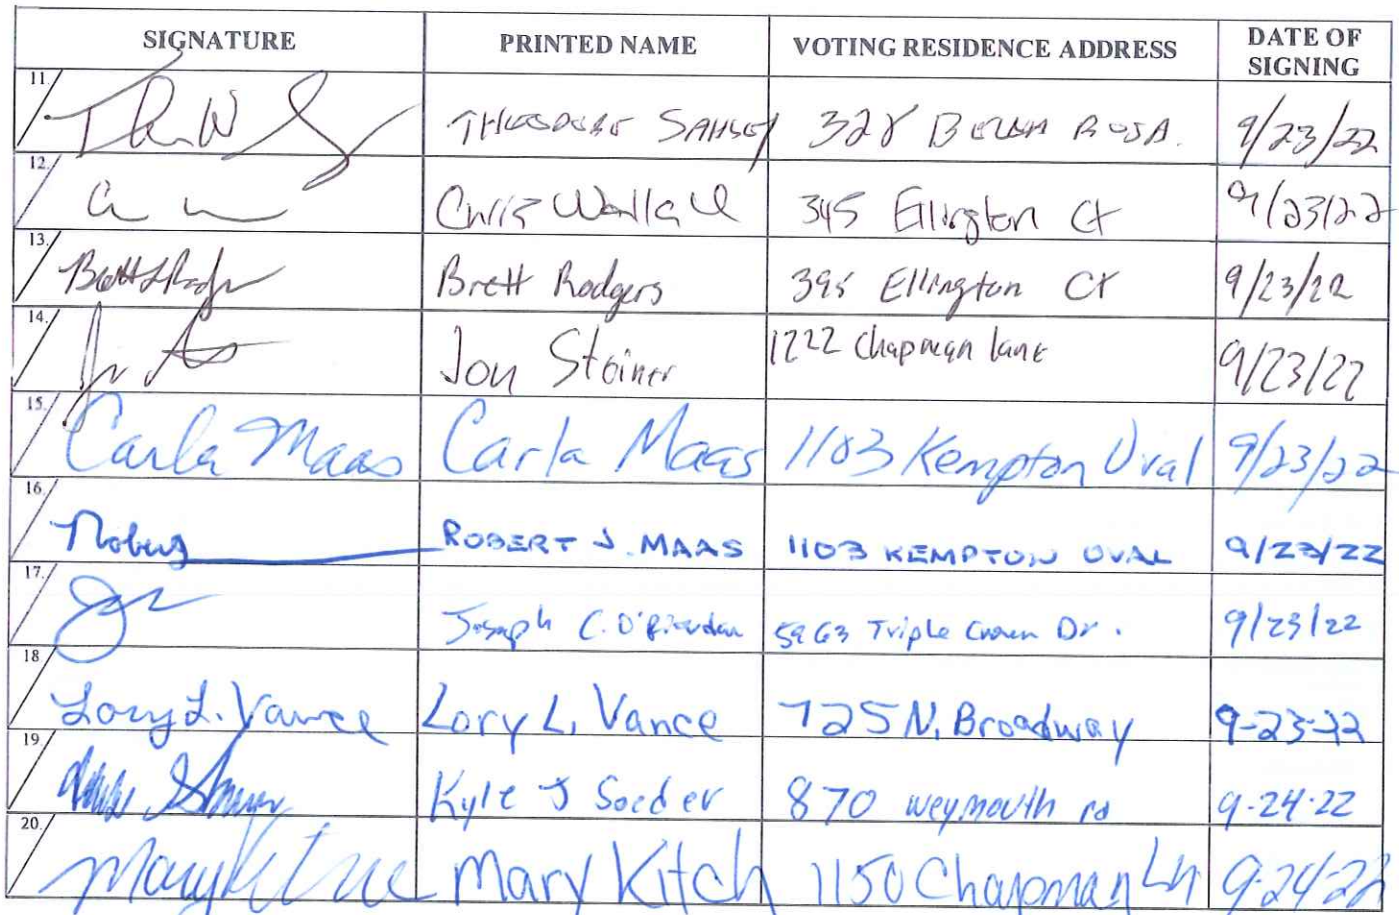 SIGNATURE PRINTED NAME VOTING RESIDENCE ADDRESS DATE OF SIGNING
11. THEODORE 328 BELLA ROSA. 9/23/22
12. Chris Wallace 345 Ellington Ct 9/23/22
13. Brett Rodgers Brett Rodgers 395 Ellington Ct 9/23/22
14. Jon Steiner 1222 Chapman lane 9/23/22
15. Carla Maas Carla Maas 1103 Kempton Oval 9/23/22
16. ROBERT J. MAAS 1103 KEMPTON OVAL 9/23/22
17. Joseph C. O'Riordan 5963 Triple Crown Dr. 9/23/22
18. Lory L. Vance Lory L. Vance 725 N. Broadway 9-23-22
19. Kyle J Soeder 870 weymouth rd 9-24-22
20. Mary Kitch 1150 Chapman Ln 9-24-22